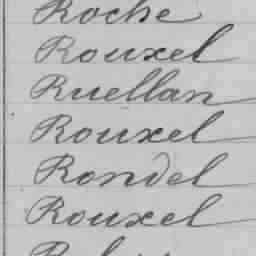 Roche
Rouxel
Ruellan
Rouxel
Rondel
Rouxel